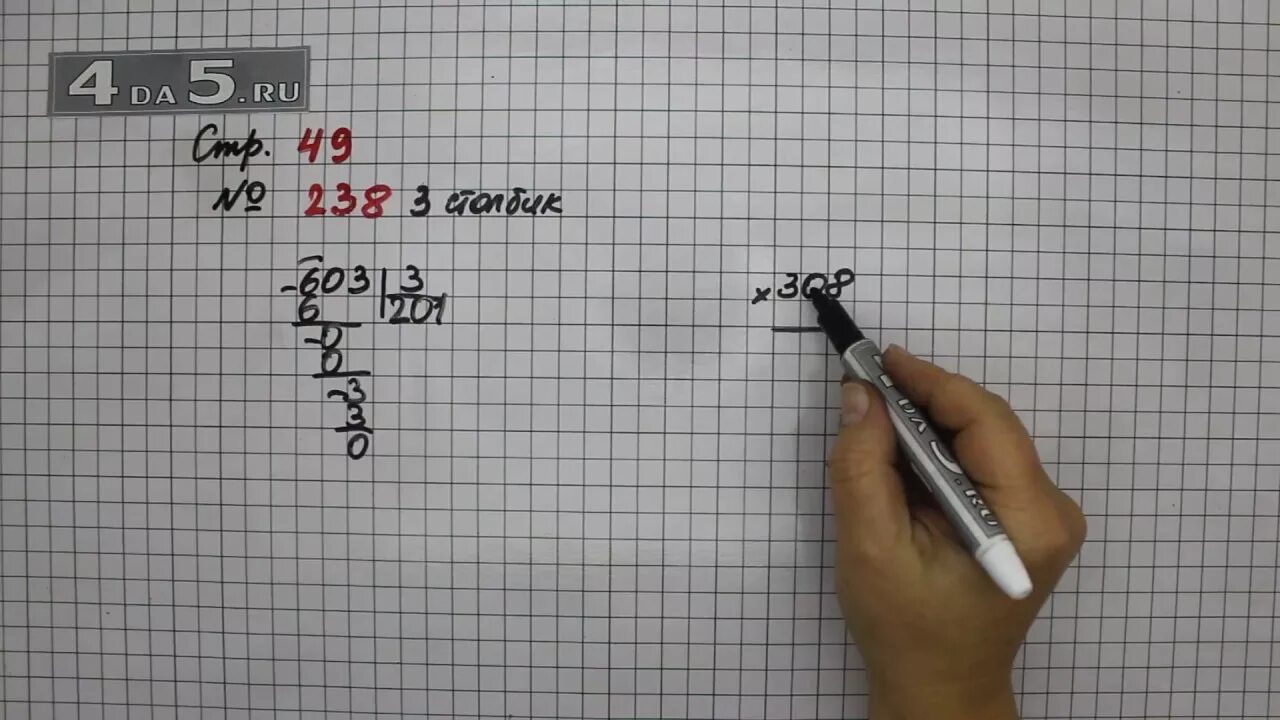 4DA5.RU
Стр. 49
№ 238 3 столбик
-603 | 3
6 | 201
-0
0
-3
3
0
× 308